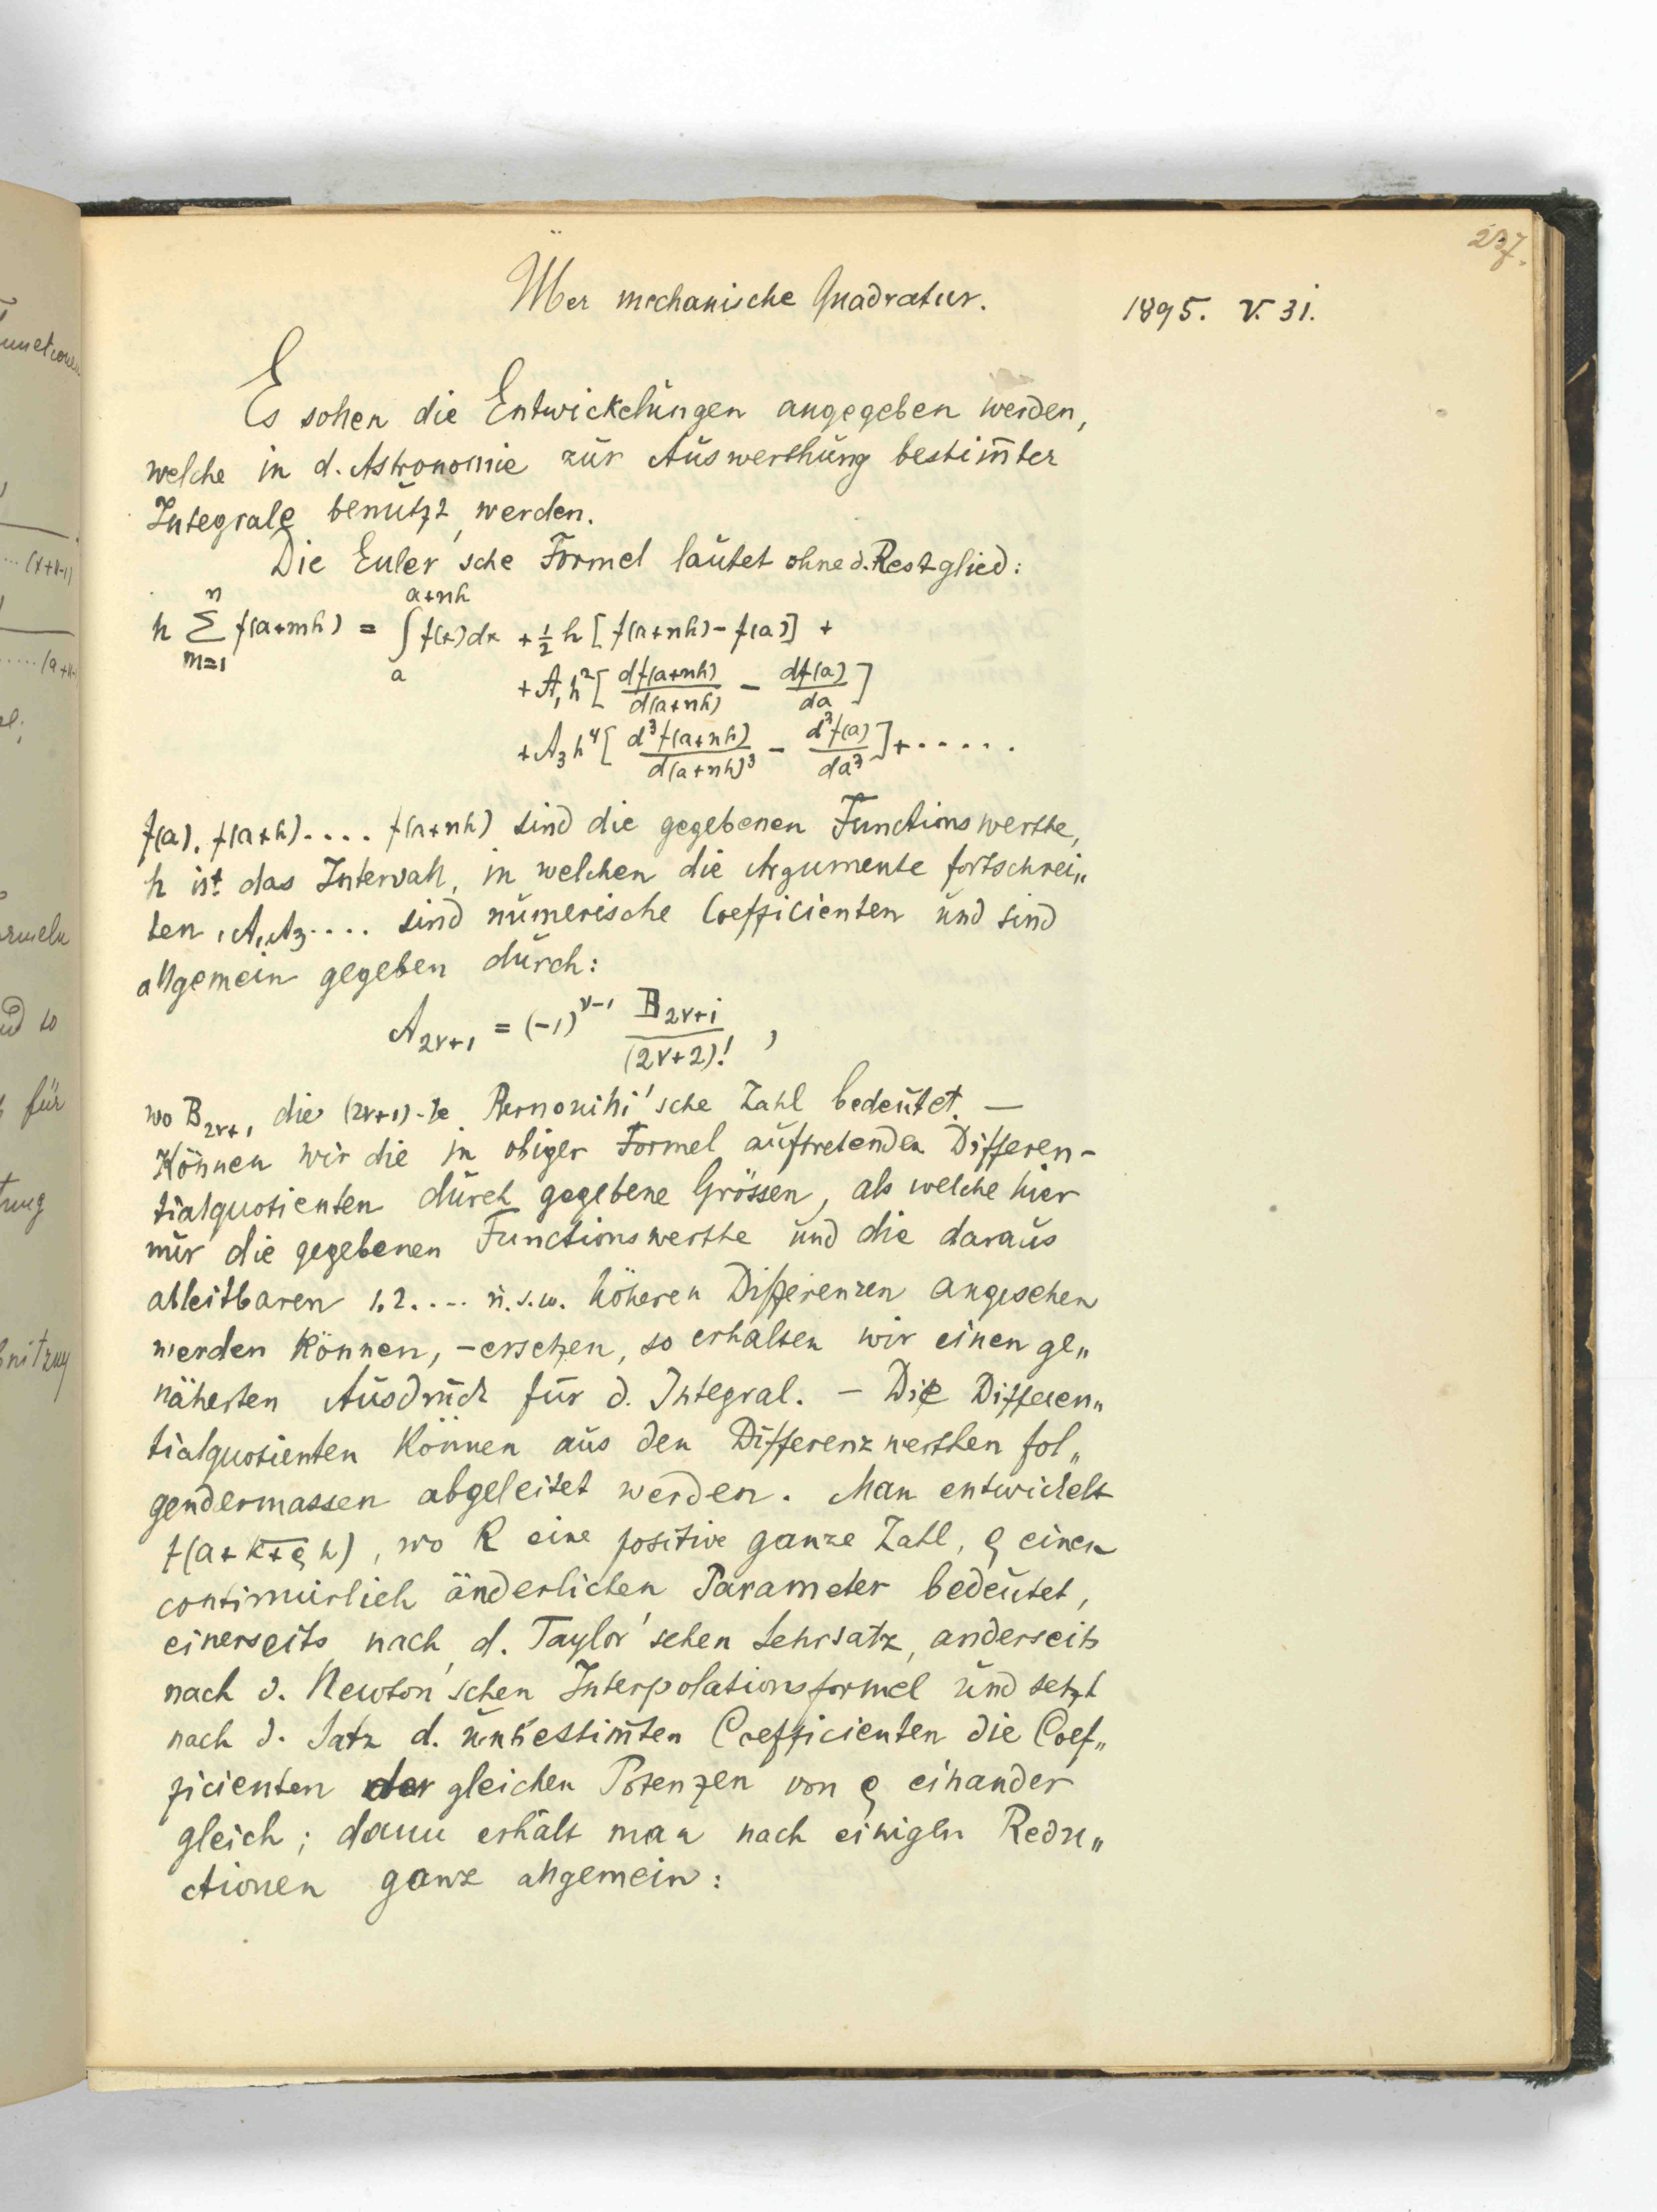 237.
Über mechanische Quadratur.
1895. V. 31.
Es sollen die Entwickelungen angegeben werden,
welche in d. Astronomie zur Auswerthung bestim̅ter
Integrale benützt werden.
Die Euler'sche Formel lautet ohne d. Restglied:
h \sum_{m=1}^{n} f(a+mh) = \int_{a}^{a+nh} f(x)dx + \frac{1}{2} h [f(a+nh) - f(a)] +
+ A_1 h^2 [\frac{df(a+nh)}{d(a+nh)} - \frac{df(a)}{da}]
+ A_3 h^4 [\frac{d^3f(a+nh)}{d(a+nh)^3} - \frac{d^3f(a)}{da^3}] + .....
f(a), f(a+h).... f(a+nh) sind die gegebenen Functionswerthe,
h ist das Intervall, in welchen die Argumente fortschrei„
ten, A_1, A_3.... sind numerische Coefficienten und sind
allgemein gegeben durch:
A_{2ν+1} = (-1)^{ν-1} \frac{B_{2ν+1}}{(2ν+2)!} ,
wo B_{2ν+1} die (2ν+1)-te Bernoulli'sche Zahl bedeutet. —
Können wir die in obiger Formel auftretenden Differen-
tialquotienten durch gegebene Grössen, als welche hier
nur die gegebenen Functionswerthe und die daraus
ableitbaren 1, 2.... u.s.w. höheren Differenzen angesehen
werden können, - ersetzen, so erhalten wir einen ge„
näherten Ausdruck für d. Integral. — Die Differen„
tialquotienten können aus den Differenzwerthen fol„
gendermassen abgeleitet werden. Man entwickelt
f(a + \overline{k+ρ} h), wo k eine positive ganze Zahl, ρ einen
continuirlich änderlichen Parameter bedeutet,
einerseits nach d. Taylor'schen Lehrsatz, anderseits
nach d. Newton'schen Interpolationsformel und setzt
nach d. Satz d. unbestim̅ten Coefficienten die Coef„
ficienten der gleichen Potenzen von ρ einander
gleich; dann erhält man nach einigen Redu„
ctionen ganz allgemein: